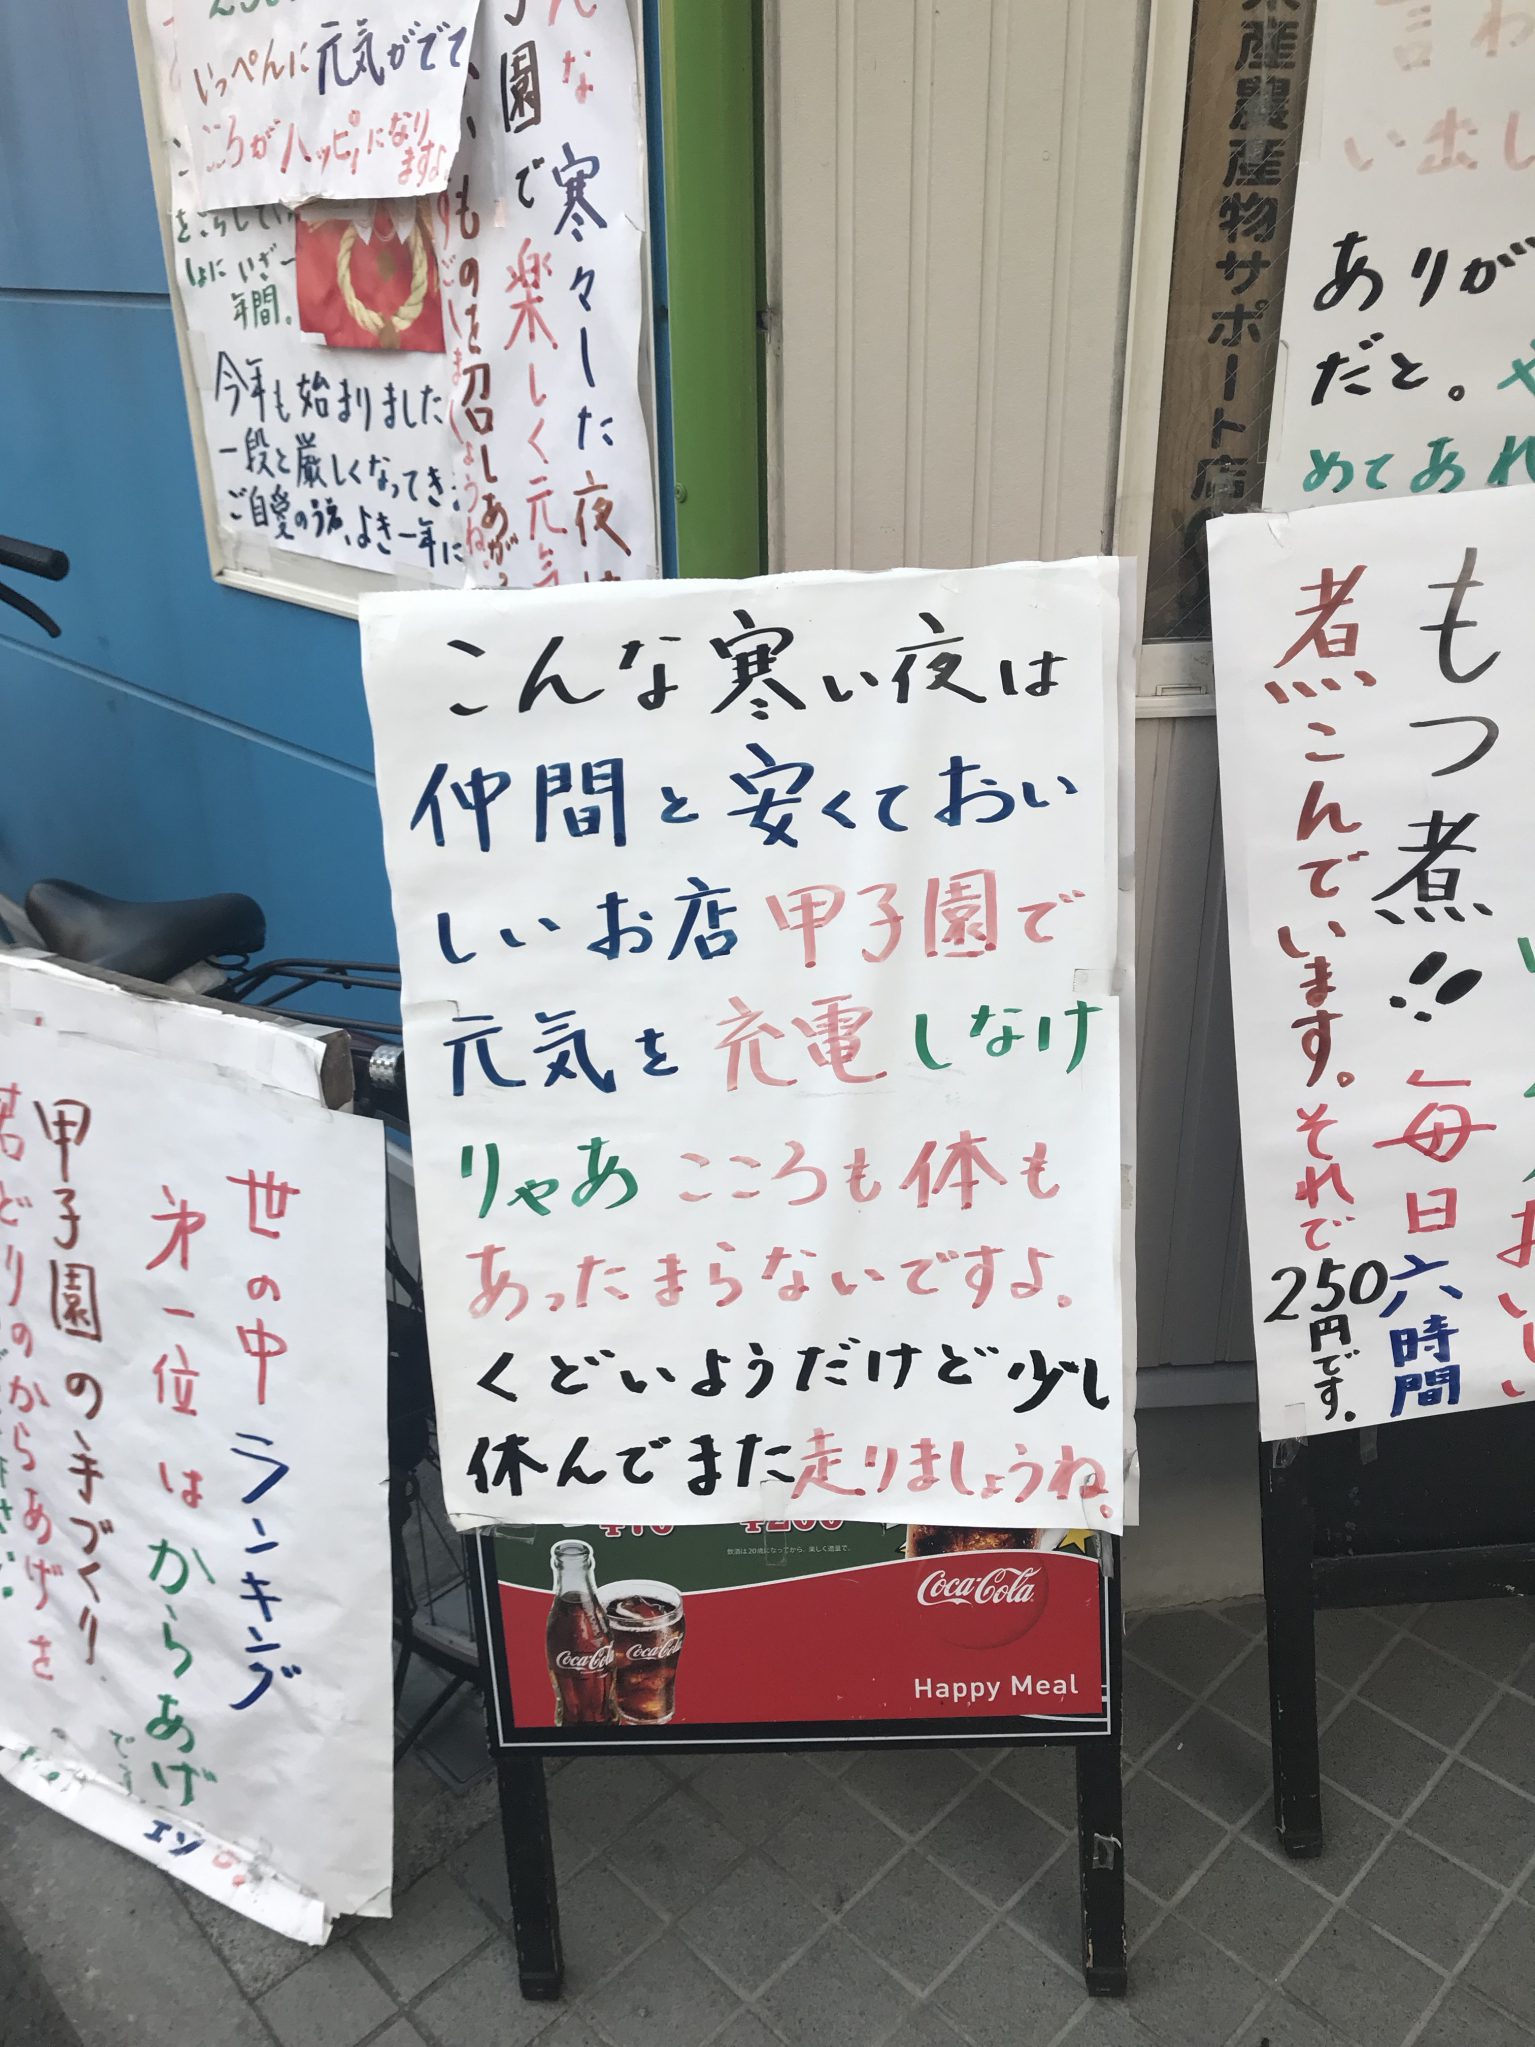 いっぺんに元気がでて
こころがハッピーになり
ますよ
年間。
今年も始まりました
一段と厳しくなってき
ご自愛のうえ、よき一年に
寒々した夜は
園で楽しく元気
ものを召しあが
すごしましょうね
産農産物サポート店
言わ
い出し
ありが
だと。や
めてあれ
こんな寒い夜は
仲間と安くておい
しいお店甲子園で
元気を充電しなけ
りゃあこころも体も
あったまらないですよ。
くどいようだけど少し
休んでまた走りましょうね。
もつ煮!!毎日六時間
煮こんでいます。それで
250円です。
おいしい
世の中ランキング
第一位はからあげ
です
甲子園の手づくり
若どりのからあげを
エソ
¥200
飲酒は20歳になってから。楽しく適量で。
Coca-Cola
Coca-Cola
Coca-Cola
Happy Meal